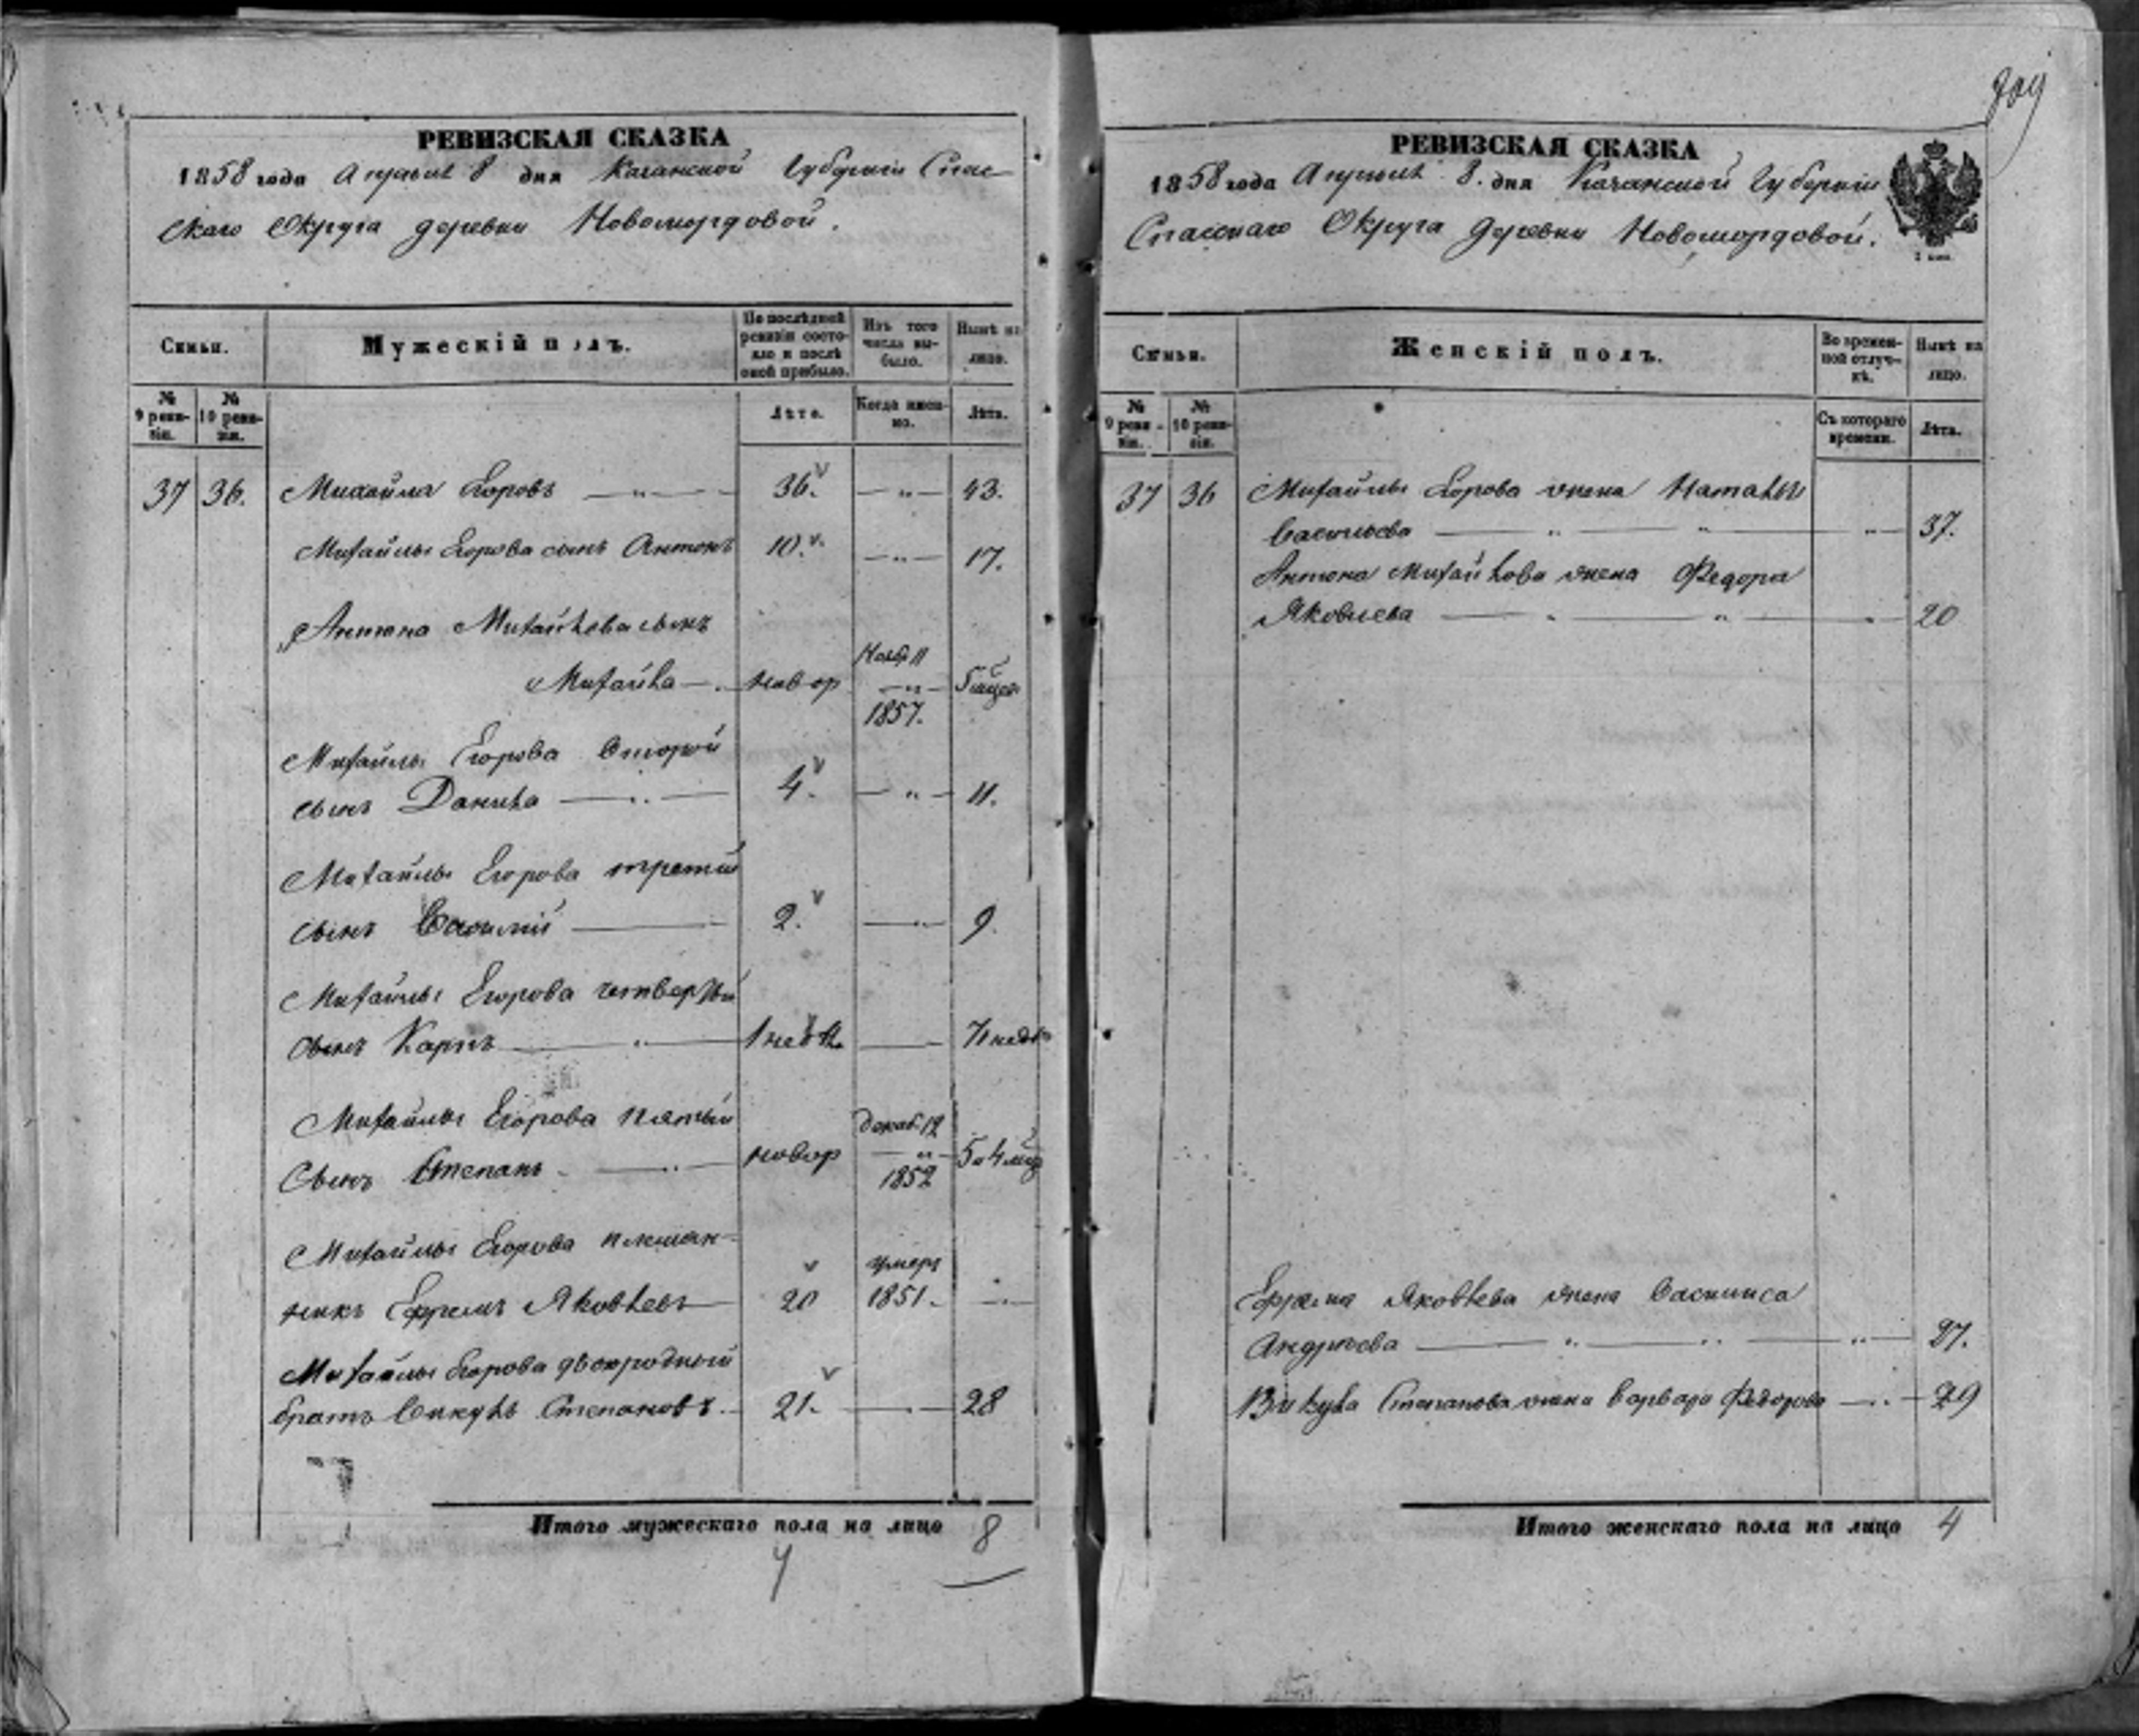 РЕВИЗСКАЯ СКАЗКА
1858 года Апреля 8 дня Казанской Губернiи Спас-
скаго Округа деревни Новомордовой.
Семьи.
Мужескій полъ.
По послѣдней ревизіи состо-
яло и послѣ оной прибыло.
Изъ того числа вы-
было.
Нынѣ на лицо.
№ 9 реви-
зіи.
№ 10 реви-
зіи.
Лѣта.
Когда имен-
но.
Лѣта.
37 36. Михайла Егоровъ — „ — 36. — „ — 43.
Михайлы Егорова сынъ Антонъ 10. — „ — 17.
Антона Михайлова сынъ
Михайла — новор Нояб 11 1857. 5 мцов
Михайлы Егорова второй
сынъ Данила — 4. — „ — 11.
Михайлы Егорова третій
сынъ Василій — 2. — „ — 9.
Михайлы Егорова четвертый
сынъ Карпъ — „ —
Михайлы Егорова пятый
Сынъ Степанъ — новор декаб. 12 1852 5 и 4 мцо
Михайлы Егорова племян-
никъ Ефремъ Яковлевъ 20 умеръ 1851. —
Михайлы Егорова двоюродный
братъ Викулъ Степановъ. 21. — 28
Итого мужескаго пола на лицо 8
РЕВИЗСКАЯ СКАЗКА
1858 года Апреля 8. дня Казанской Губерніи
Спасскаго Округа деревни Новомордовой.
Семьи.
Женскій полъ.
Во времен-
ной отлуч-
кѣ.
Нынѣ на лицо.
№ 9 реви-
зіи.
№ 10 реви-
зіи.
Съ котораго времени.
Лѣта.
37 36 Михайлы Егорова жена Наталья
Васильева — „ — „ — 37.
Антона Михайлова жена Федора
Яковлева — „ — „ — 20
Ефрема Яковлева жена Василиса
Андреева — „ — „ — 27.
Викула Степанова жена Варвара Федорова — 29
Итого женскаго пола на лицо 4